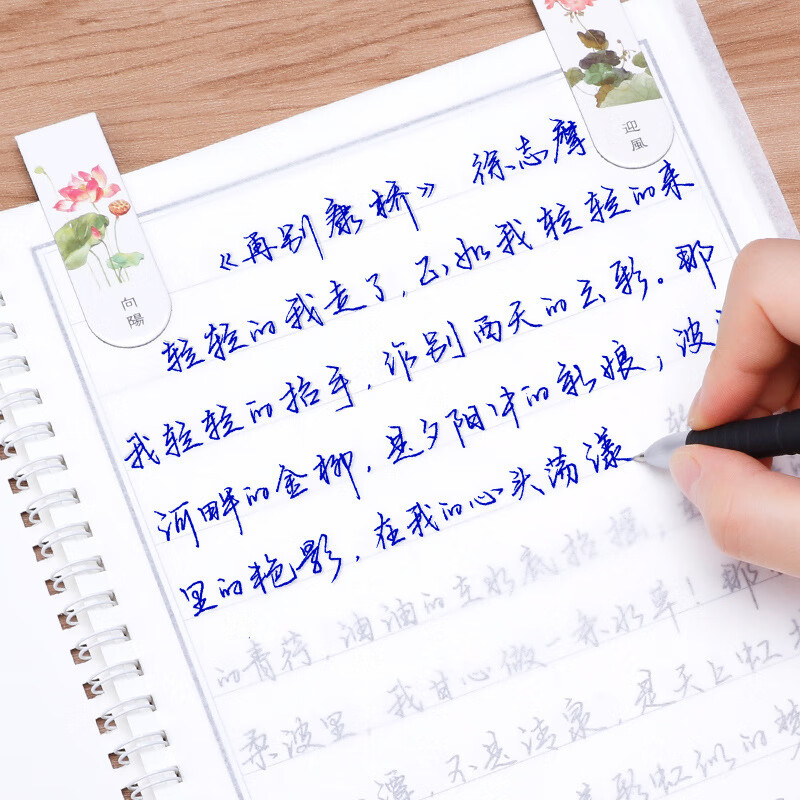 向陽
迎風
《再别康桥》 徐志摩
轻轻的我走了,正如我轻轻的来
我轻轻的招手,作别西天的云彩。那
河畔的金柳,是夕阳中的新娘;波
里的艳影,在我的心头荡漾
的青荇,油油的在水底招摇;
柔波里,我甘心做一条水草!那
潭,不是清泉,是天上虹
彩虹似的梦